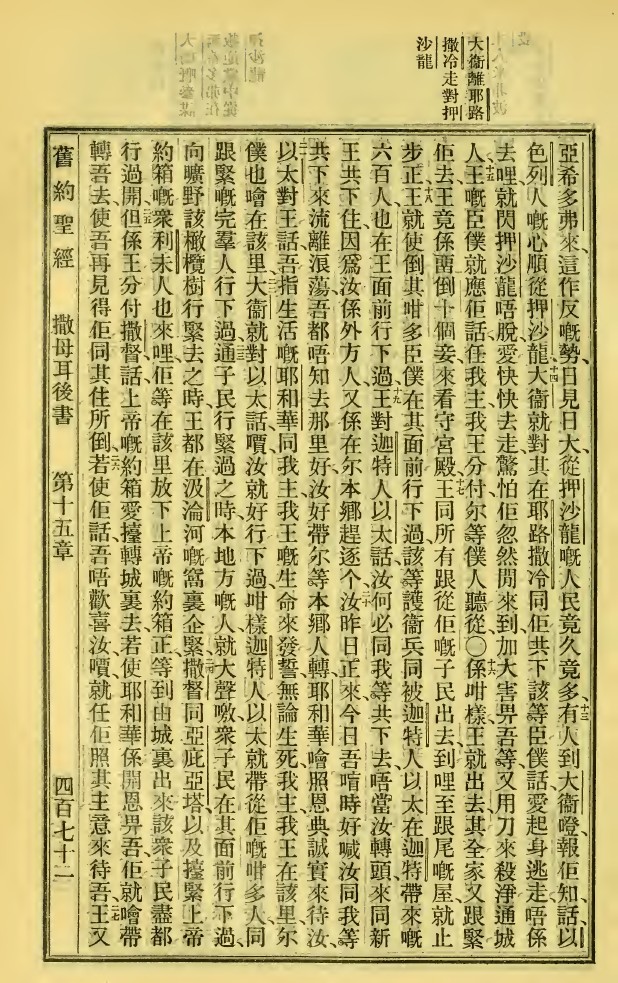 大衞離耶路
撒冷走對押
沙龍
亞希多弗來、這作反嘅勢、日見日大、從押沙龍嘅人民竟久竟多、十三有人到大衞嶝報佢知、話、以
色列人嘅心順從押沙龍、十四大衞就對其在耶路撒冷同佢共下該等臣僕話、愛起身逃走、唔係
去哩、就閃押沙龍唔脫、愛快快去走、驚怕佢忽然間來到、加大害畀吾等、又用刀來殺淨通城
人、十五王嘅臣僕就應佢話、任我主我王分付、尔等僕人聽從、〇十六係咁樣王就出去、其全家又跟緊
佢去、王竟係畱倒十個妾來看守宮殿、十七王同所有跟從佢嘅子民出去、到哩至跟尾嘅屋就止
步、十八正王就使倒其咁多臣僕在其面前行下過、該等護衞兵、同被迦特人以太在迦特帶來嘅
六百人、也在王面前行下過、十九王對迦特人以太話、汝何必同我等共下去、唔當汝轉頭來同新
王共下住、因爲汝係外方人、又係在尔本鄉趕逐个、二十汝昨日正來、今日吾唷時好喊汝同我等
共下來流離浪蕩、吾都唔知去那里好、汝好帶尔等本鄉人轉、耶和華噲照恩典誠實來待汝、
以太對王話、吾指生活嘅耶和華、同我主我王嘅生命來發誓、無論生死、我主我王在該里、尔
僕也噲在該里、大衞就對以太話、嘪汝就好行下過、咁樣迦特人以太就帶從佢嘅咁多人、同
跟緊嘅完羣人行下過、通子民行緊過之時、本地方嘅人就大聲噭、衆子民在其面前行下過、
向曠野該橄欖樹行緊去之時、王都在汲淪河嘅窩裏企緊、撒督同亞庇亞塔、以及擡緊上帝
約箱嘅衆利未人也來哩、佢等在該里放下上帝嘅約箱、正等到由城裏出來該衆子民盡都
行過開、二五但係王分付撒督話、上帝嘅約箱愛擡轉城裏去、若使耶和華係開恩畀吾、佢就噲帶
轉吾去、使吾再見得佢同其住所倒、二六若使佢話吾唔歡喜汝嘪、就任佢照其主意來待吾、二七王又
舊約聖經　撒母耳後書　第十五章　四百七十二